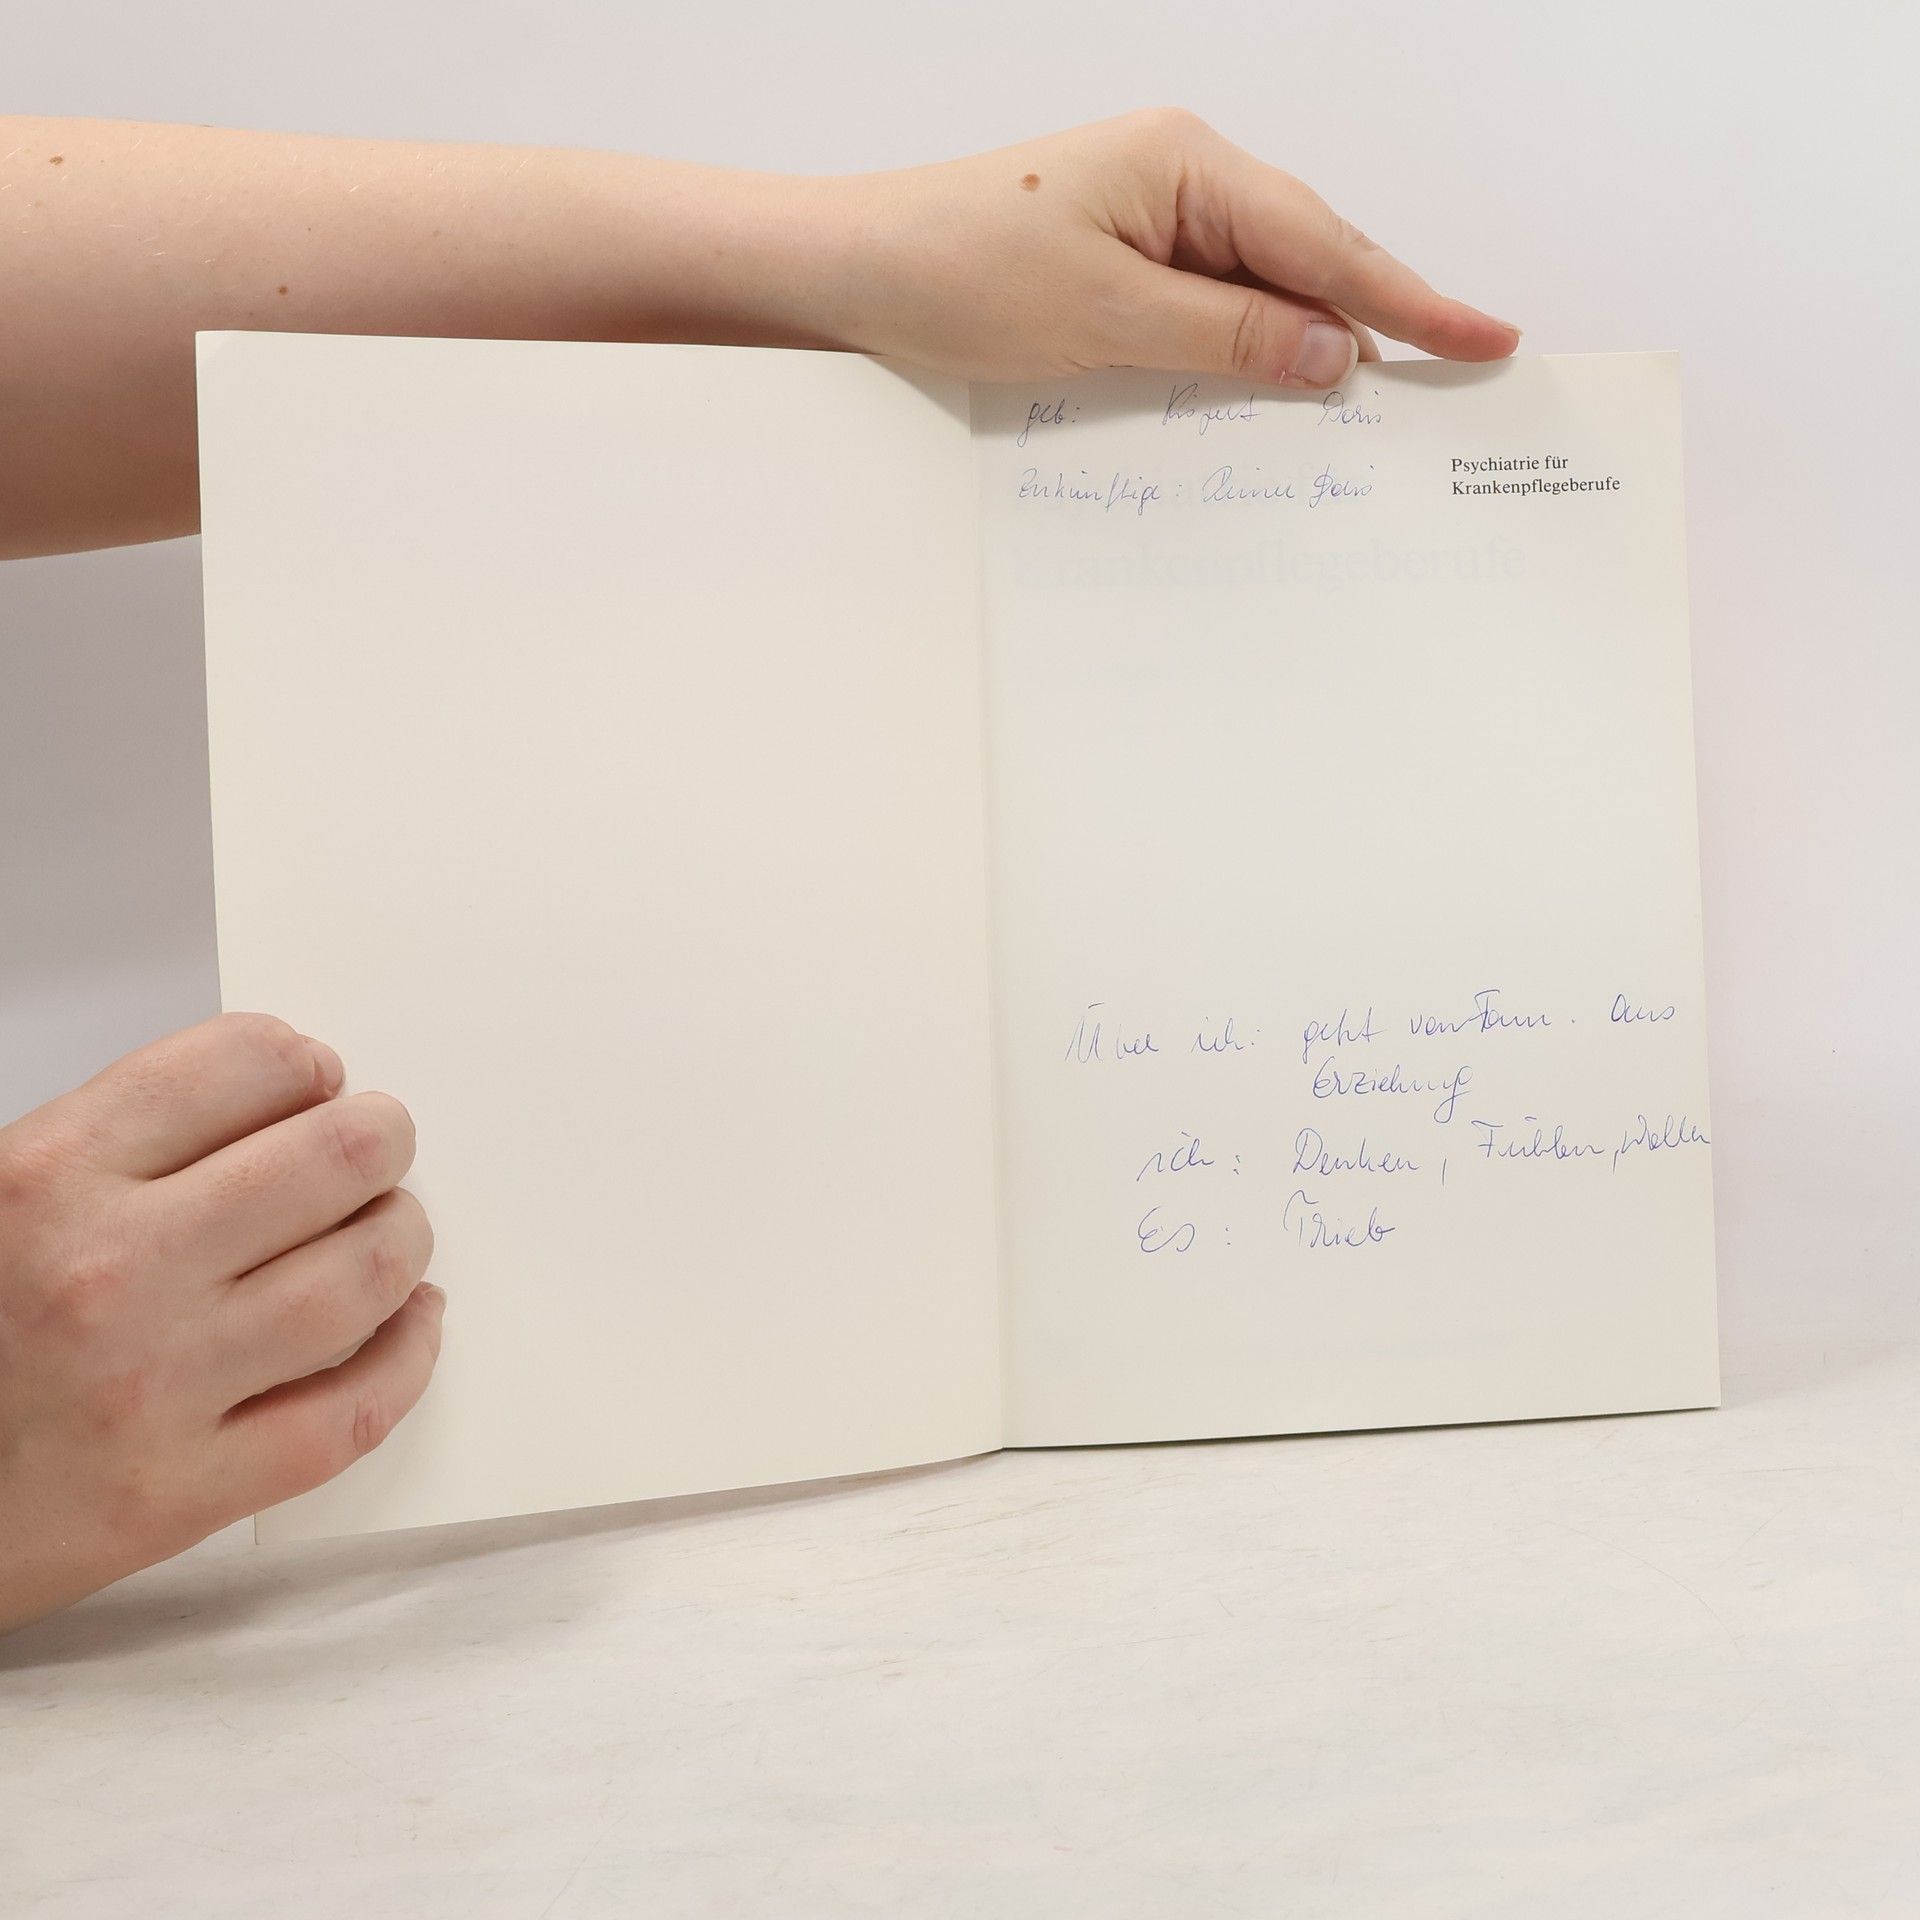 geb: Rispert Doris
Zukünftige: Doris
Psychiatrie für
Krankenpflegeberufe
Krankenpflegeberufe
Über ich: geht von Fam. aus
Erziehung
ich: Denken, Fühlen, Wollen
Es: Trieb